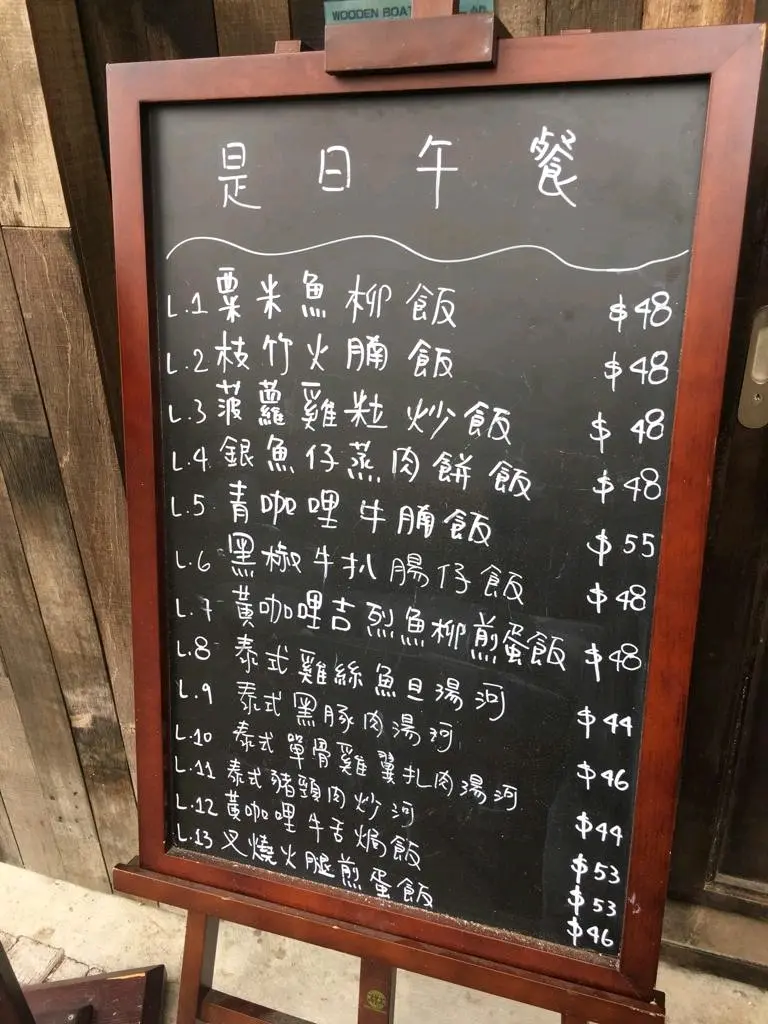 WOODEN BOAT
是日午餐
L.1 粟米魚柳飯 $48
L.2 枝竹火腩飯 $48
L.3 菠蘿雞粒炒飯 $48
L.4 銀魚仔蒸肉餅飯 $48
L.5 青咖哩牛腩飯 $55
L.6 黑椒牛扒腸仔飯 $48
L.7 黃咖哩吉烈魚柳煎蛋飯 $48
L.8 泰式雞絲魚旦湯河 $44
L.9 泰式黑豚肉湯河 $46
L.10 泰式單骨雞翼扎肉湯河 $44
L.11 泰式豬頸肉炒河 $53
L.12 黃咖哩牛舌焗飯 $53
L.13 叉燒火腿煎蛋飯 $46